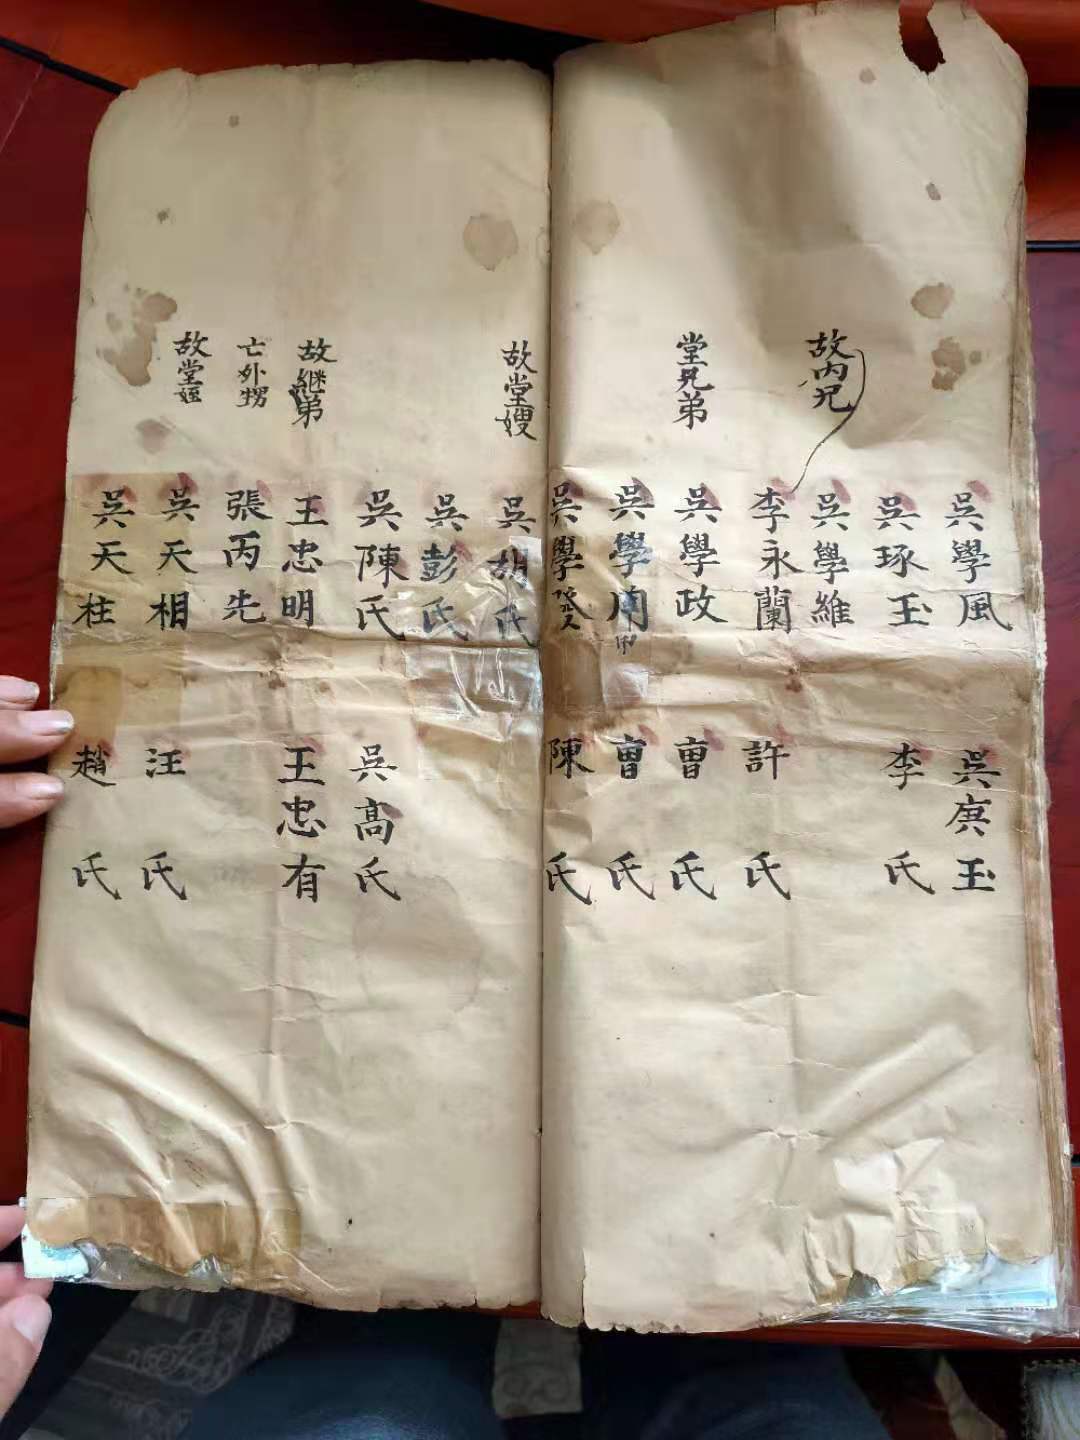 吳學風
吳庚玉
吳琢玉
李氏
吳學維
故內兄
李永蘭
許氏
堂兄弟
吳學政
曹氏
吳學周
曹氏
吳學
陳氏
故堂嫂
吳胡氏
吳彭氏
吳陳氏
吳高氏
故継弟
王忠明
王忠有
亡外甥
張丙先
故堂姪
吳天相
汪氏
吳天柱
趙氏